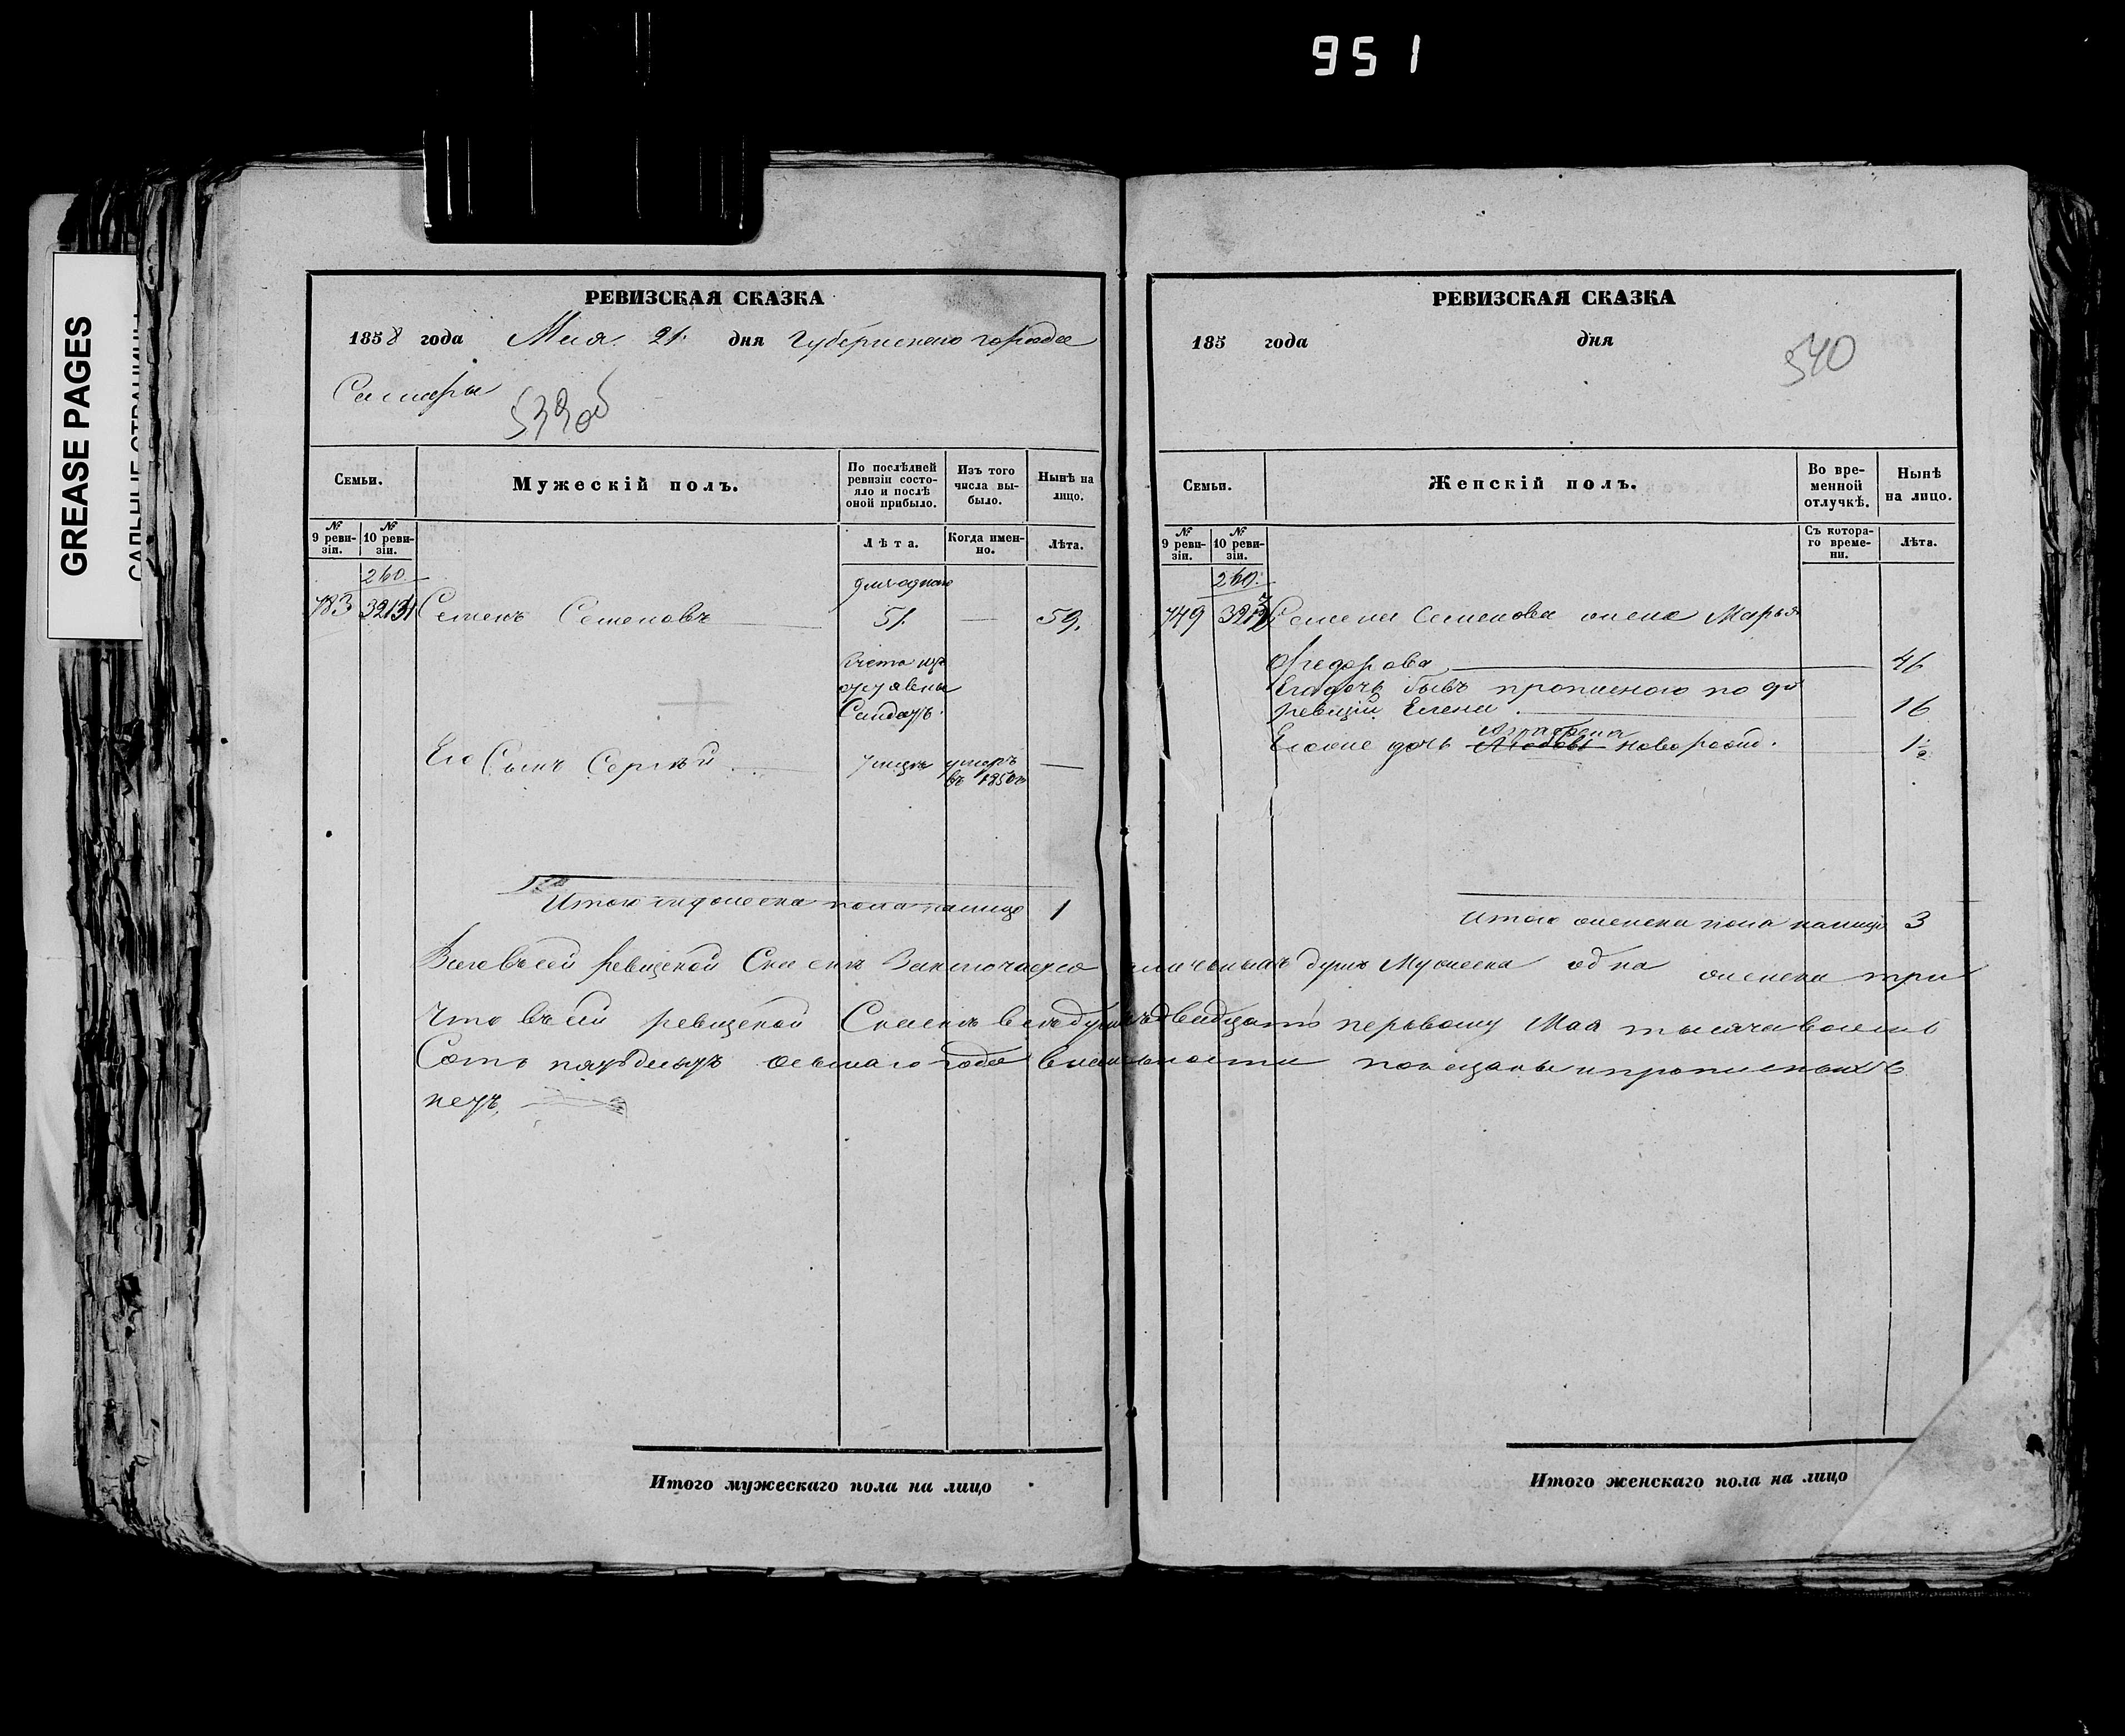 951
GREASE PAGES
РЕВИЗСКАЯ СКАЗКА
1858 года Мая 21 дня Губернскаго города
Самары
539об
Семьи.
Мужескій полъ.
По послѣдней ревизіи состояло и послѣ оной прибыло.
Изъ того числа выбыло.
Нынѣ на лицо.
№ 9 ревизіи.
№ 10 ревизіи.
Лѣта.
Когда именно.
Лѣта.
260.
783 Семенъ Семеновъ 51 — 59.
Его Сынъ Сергѣй умеръ —
въ 1850г
Итого мужеска пола налицо 1
РЕВИЗСКАЯ СКАЗКА
185 года дня
540
Семьи.
Женскій полъ.
Во временной отлучкѣ.
Нынѣ на лицо.
№ 9 ревизіи.
№ 10 ревизіи.
Съ котораго времени.
Лѣта.
260.
749 Семена Семенова жена Марья
Федорова 46
Его дочь бывъ прописною по 9й
ревизіи Елена 16
Его же дочь Любовь новорожд. 1/2
Итого женска пола налицо 3
Всего въ сей ревизской Сказкѣ Заключается наличныхъ душъ Мужеска одна женска три
Что въ сей ревизской Сказкѣ всѣ души къ двадцать первому Мая тысяча восемь
Сотъ пятьдесятъ осьмаго года въ наличности показаны и прописныхъ
нетъ.
Итого мужескаго пола на лицо
Итого женскаго пола на лицо